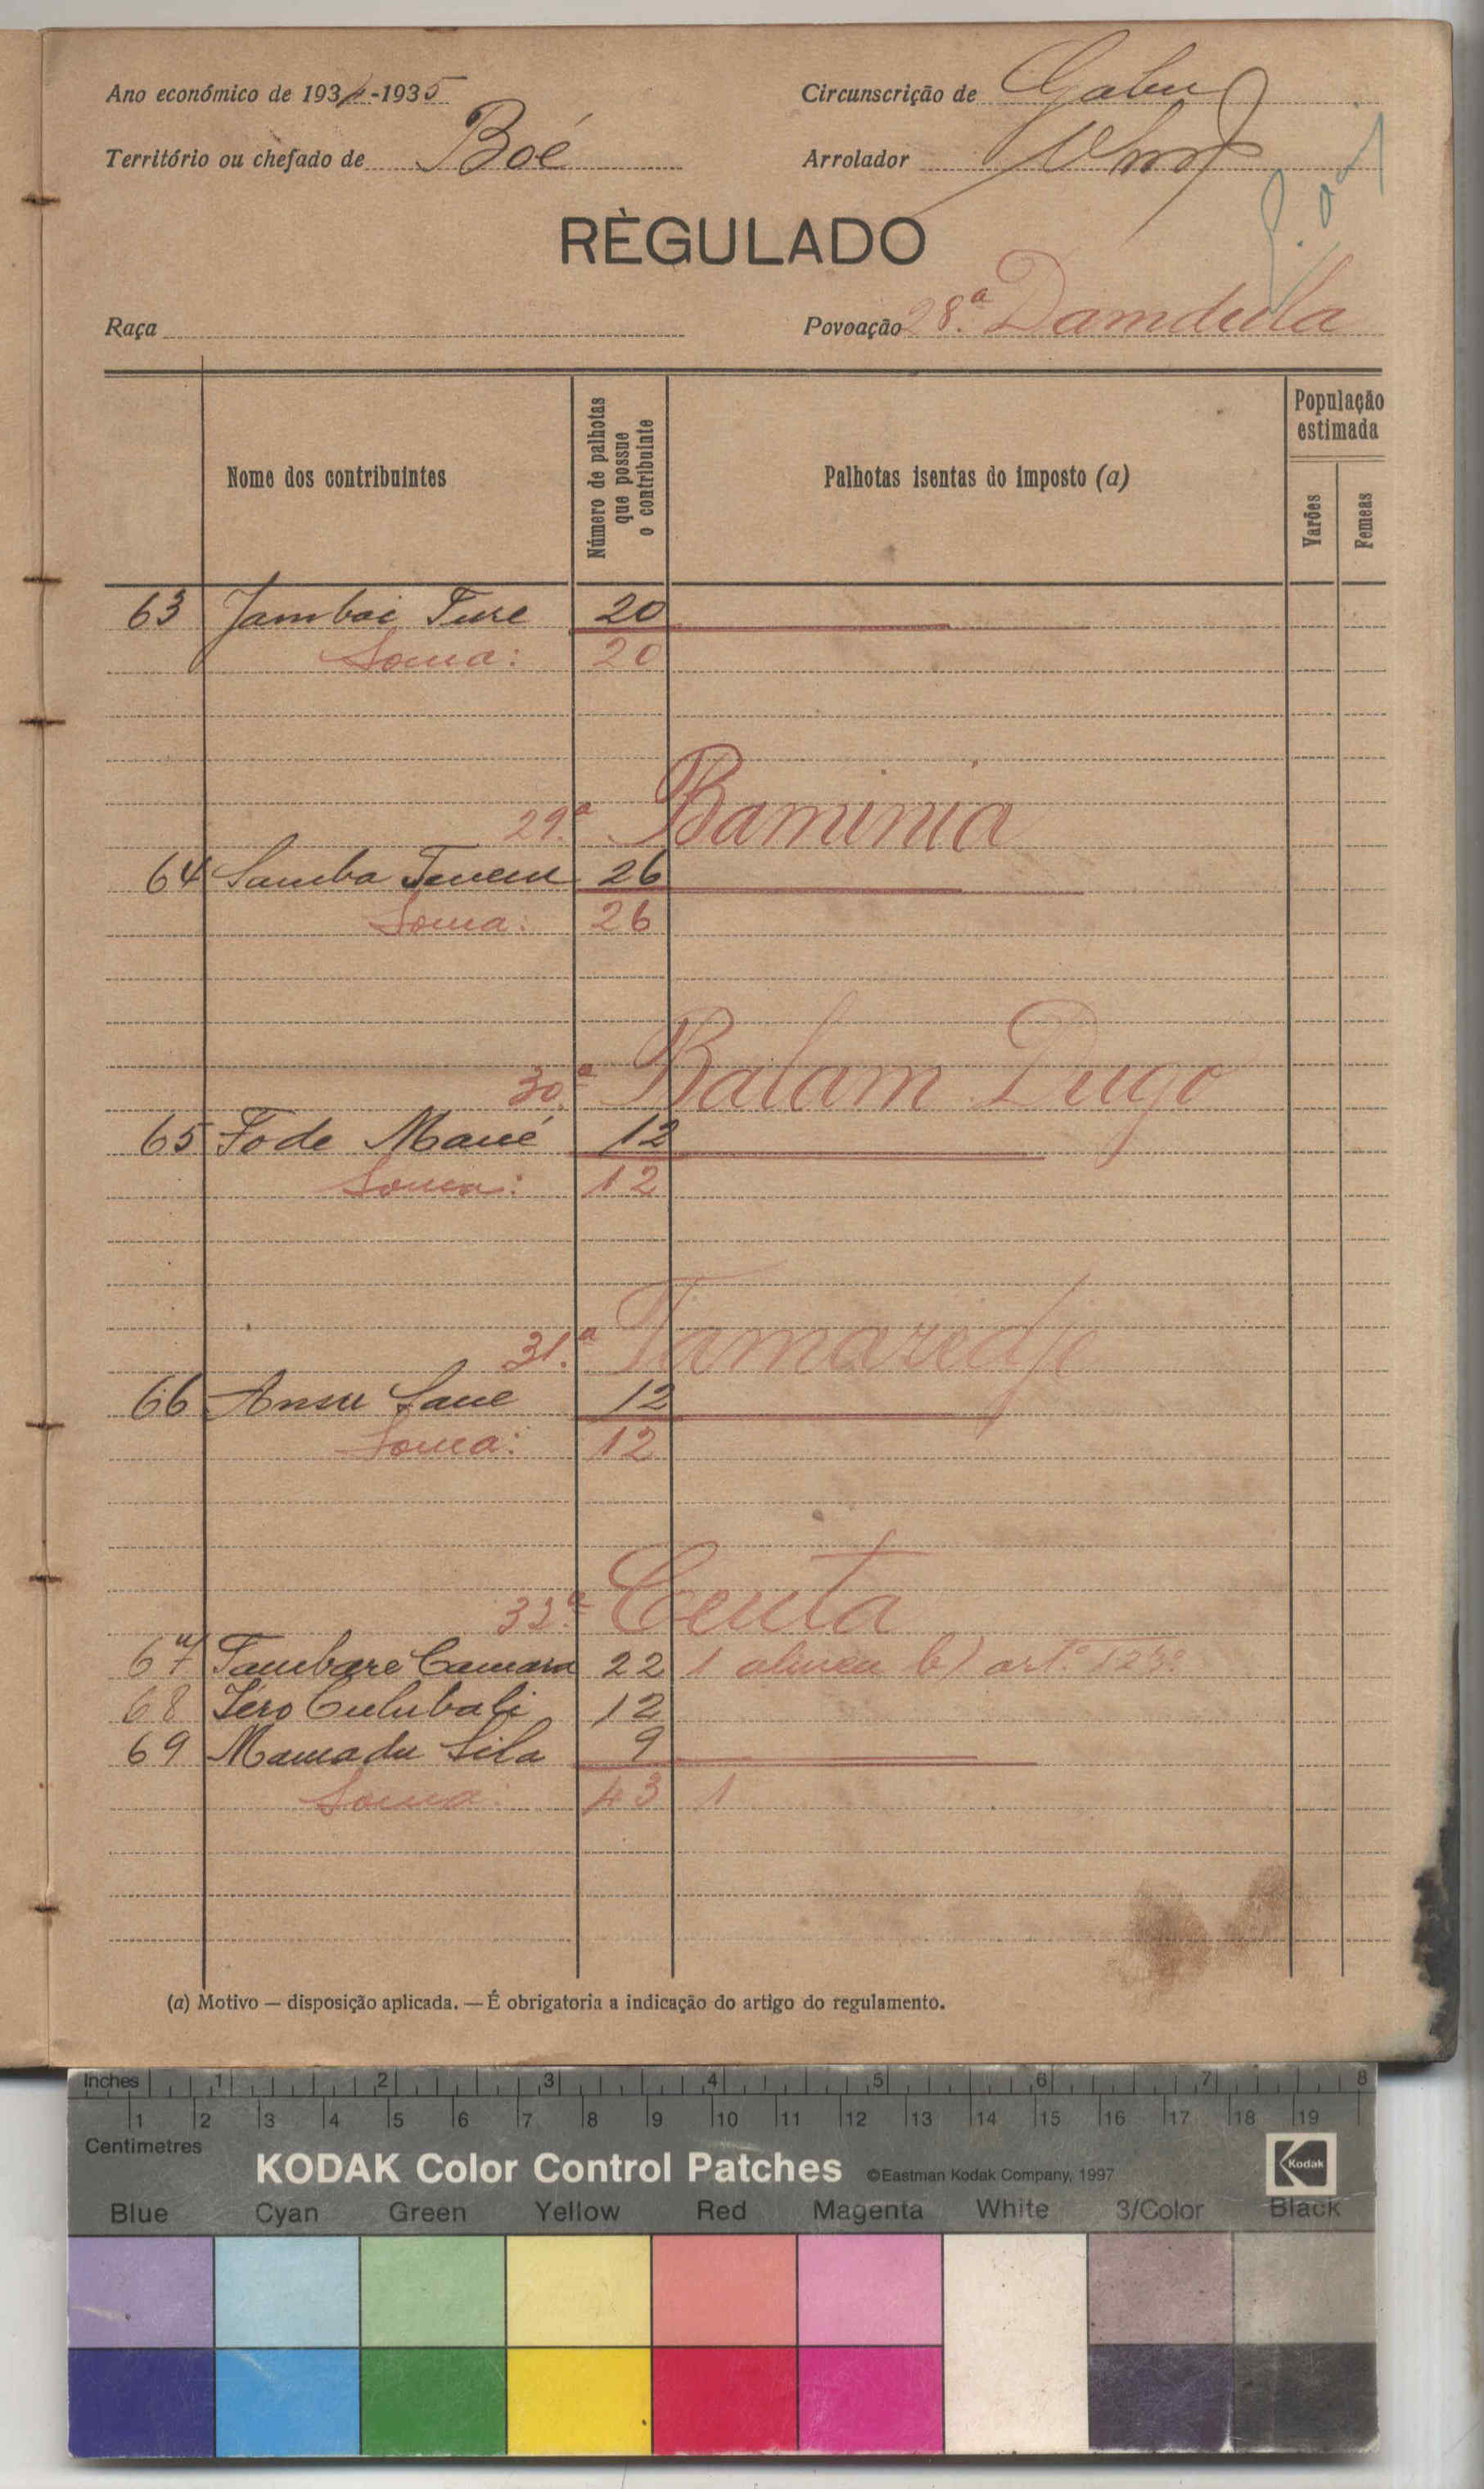 Ano económico de 1934-1935
Circunscrição de Gabu
Território ou chefado de Boé
Arrolador
RÈGULADO
Raça
Povoação 28.ª Damdula
Nome dos contribuintes
Número de palhotas que possue o contribuinte
Palhotas isentas do imposto (a)
População estimada
Varões
Femeas
63 Jambai Ture 20
Soma: 20
29.ª Baminia
64 Samba 26
Soma: 26
30.ª Balam Dugo
65 Fode Mané 12
Soma: 12
31.ª Tamaredje
66 Ansu Sane 12
Soma: 12
32.ª Ceuta
67 Tambare Camara 22 1 alinea b) artº
68 Jero Culubali 12
69 Mamadu Sila 9
Soma: 43 1
(a) Motivo — disposição aplicada. — É obrigatoria a indicação do artigo do regulamento.
Inches 1 2 3 4 5 6 7 8
1 2 3 4 5 6 7 8 9 10 11 12 13 14 15 16 17 18 19
Centimetres
KODAK Color Control Patches ©Eastman Kodak Company, 1997 Kodak
Blue Cyan Green Yellow Red Magenta White 3/Color Black